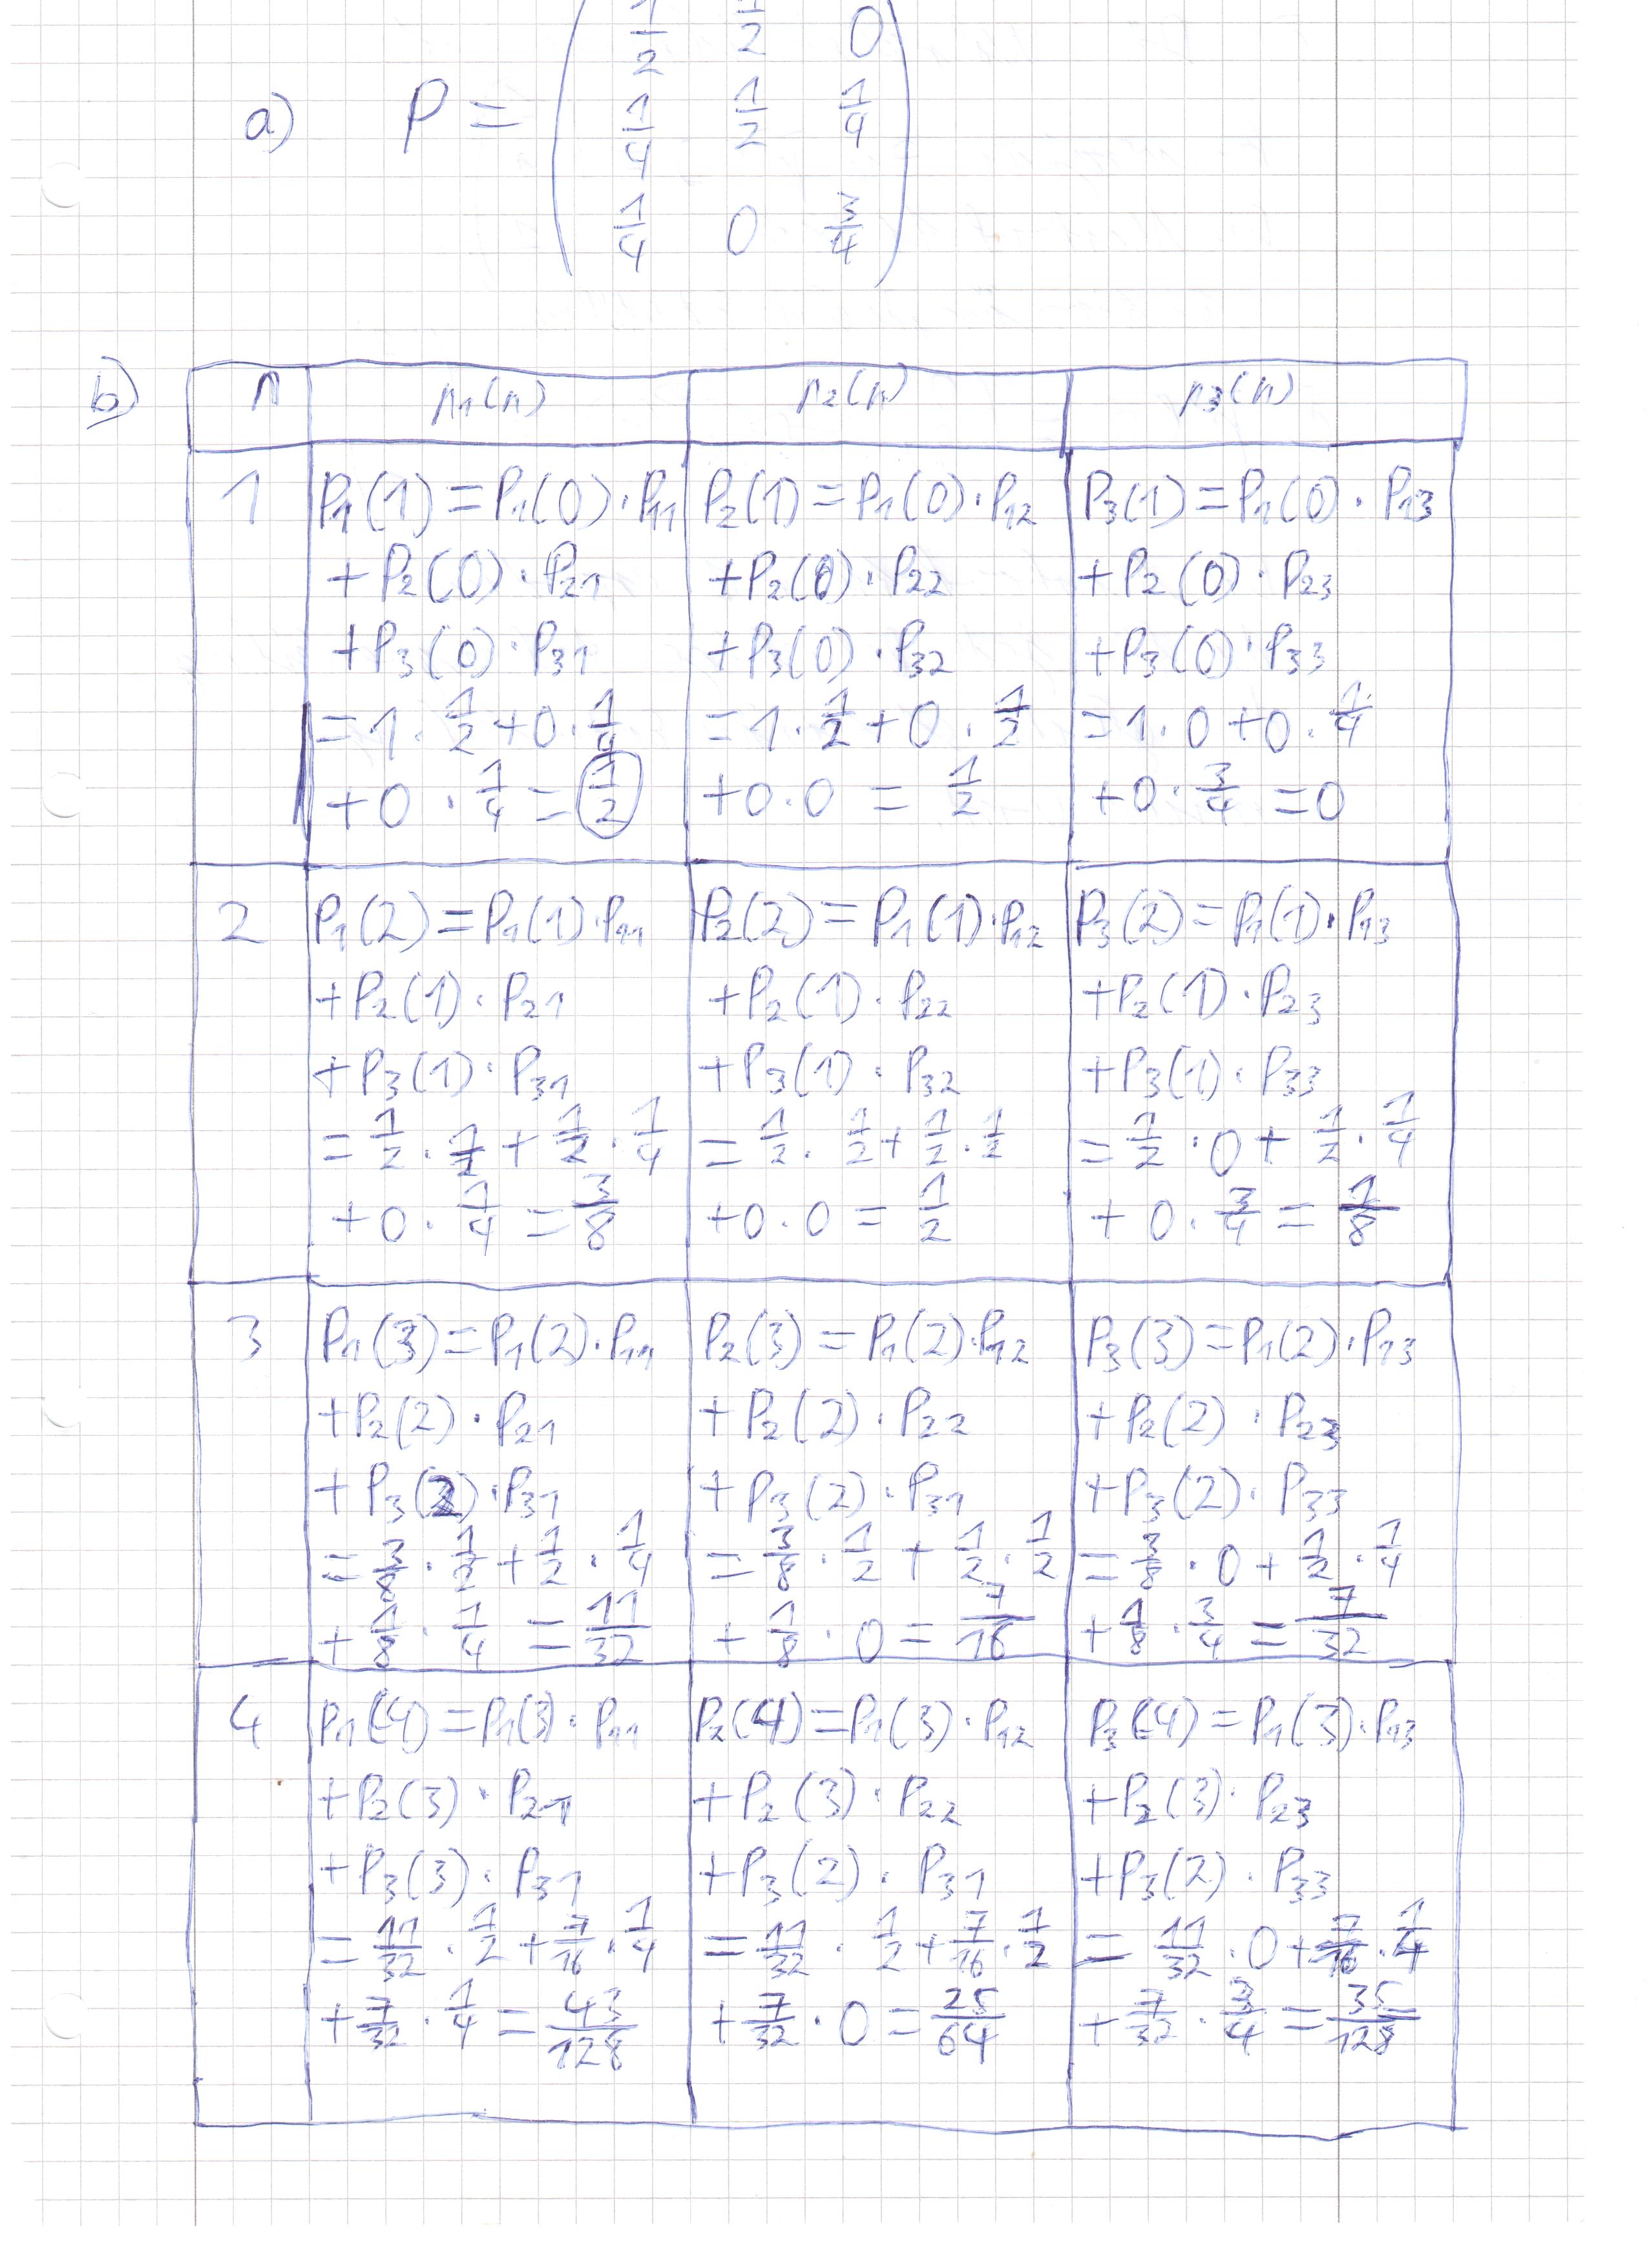 1/2 1/2 0
a) P = 1/4 1/2 1/4
1/4 0 3/4
b)
n p₁(n) p₂(n) p₃(n)
1
P₁(1) = P₁(0) · P₁₁
+ P₂(0) · P₂₁
+ P₃(0) · P₃₁
= 1 · 1/2 + 0 · 1/4
+ 0 · 1/4 = 1/2
P₂(1) = P₁(0) · P₁₂
+ P₂(0) · P₂₂
+ P₃(0) · P₃₂
= 1 · 1/2 + 0 · 1/2
+ 0 · 0 = 1/2
P₃(1) = P₁(0) · P₁₃
+ P₂(0) · P₂₃
+ P₃(0) · P₃₃
= 1 · 0 + 0 · 1/4
+ 0 · 3/4 = 0
2
P₁(2) = P₁(1) · P₁₁
+ P₂(1) · P₂₁
+ P₃(1) · P₃₁
= 1/2 · 1/2 + 1/2 · 1/4
+ 0 · 1/4 = 3/8
P₂(2) = P₁(1) · P₁₂
+ P₂(1) · P₂₂
+ P₃(1) · P₃₂
= 1/2 · 1/2 + 1/2 · 1/2
+ 0 · 0 = 1/2
P₃(2) = P₁(1) · P₁₃
+ P₂(1) · P₂₃
+ P₃(1) · P₃₃
= 1/2 · 0 + 1/2 · 1/4
+ 0 · 3/4 = 1/8
3
P₁(3) = P₁(2) · P₁₁
+ P₂(2) · P₂₁
+ P₃(2) · P₃₁
= 3/8 · 1/2 + 1/2 · 1/4
+ 1/8 · 1/4 = 11/32
P₂(3) = P₁(2) · P₁₂
+ P₂(2) · P₂₂
+ P₃(2) · P₃₁
= 3/8 · 1/2 + 1/2 · 1/2
+ 1/8 · 0 = 7/16
P₃(3) = P₁(2) · P₁₃
+ P₂(2) · P₂₃
+ P₃(2) · P₃₃
= 3/8 · 0 + 1/2 · 1/4
+ 1/8 · 3/4 = 7/32
4
P₁(4) = P₁(3) · P₁₁
+ P₂(3) · P₂₁
+ P₃(3) · P₃₁
= 11/32 · 1/2 + 7/16 · 1/4
+ 7/32 · 1/4 = 43/128
P₂(4) = P₁(3) · P₁₂
+ P₂(3) · P₂₂
+ P₃(2) · P₃₁
= 11/32 · 1/2 + 7/16 · 1/2
+ 7/32 · 0 = 25/64
P₃(4) = P₁(3) · P₁₃
+ P₂(3) · P₂₃
+ P₃(2) · P₃₃
= 11/32 · 0 + 7/16 · 1/4
+ 7/32 · 3/4 = 35/128